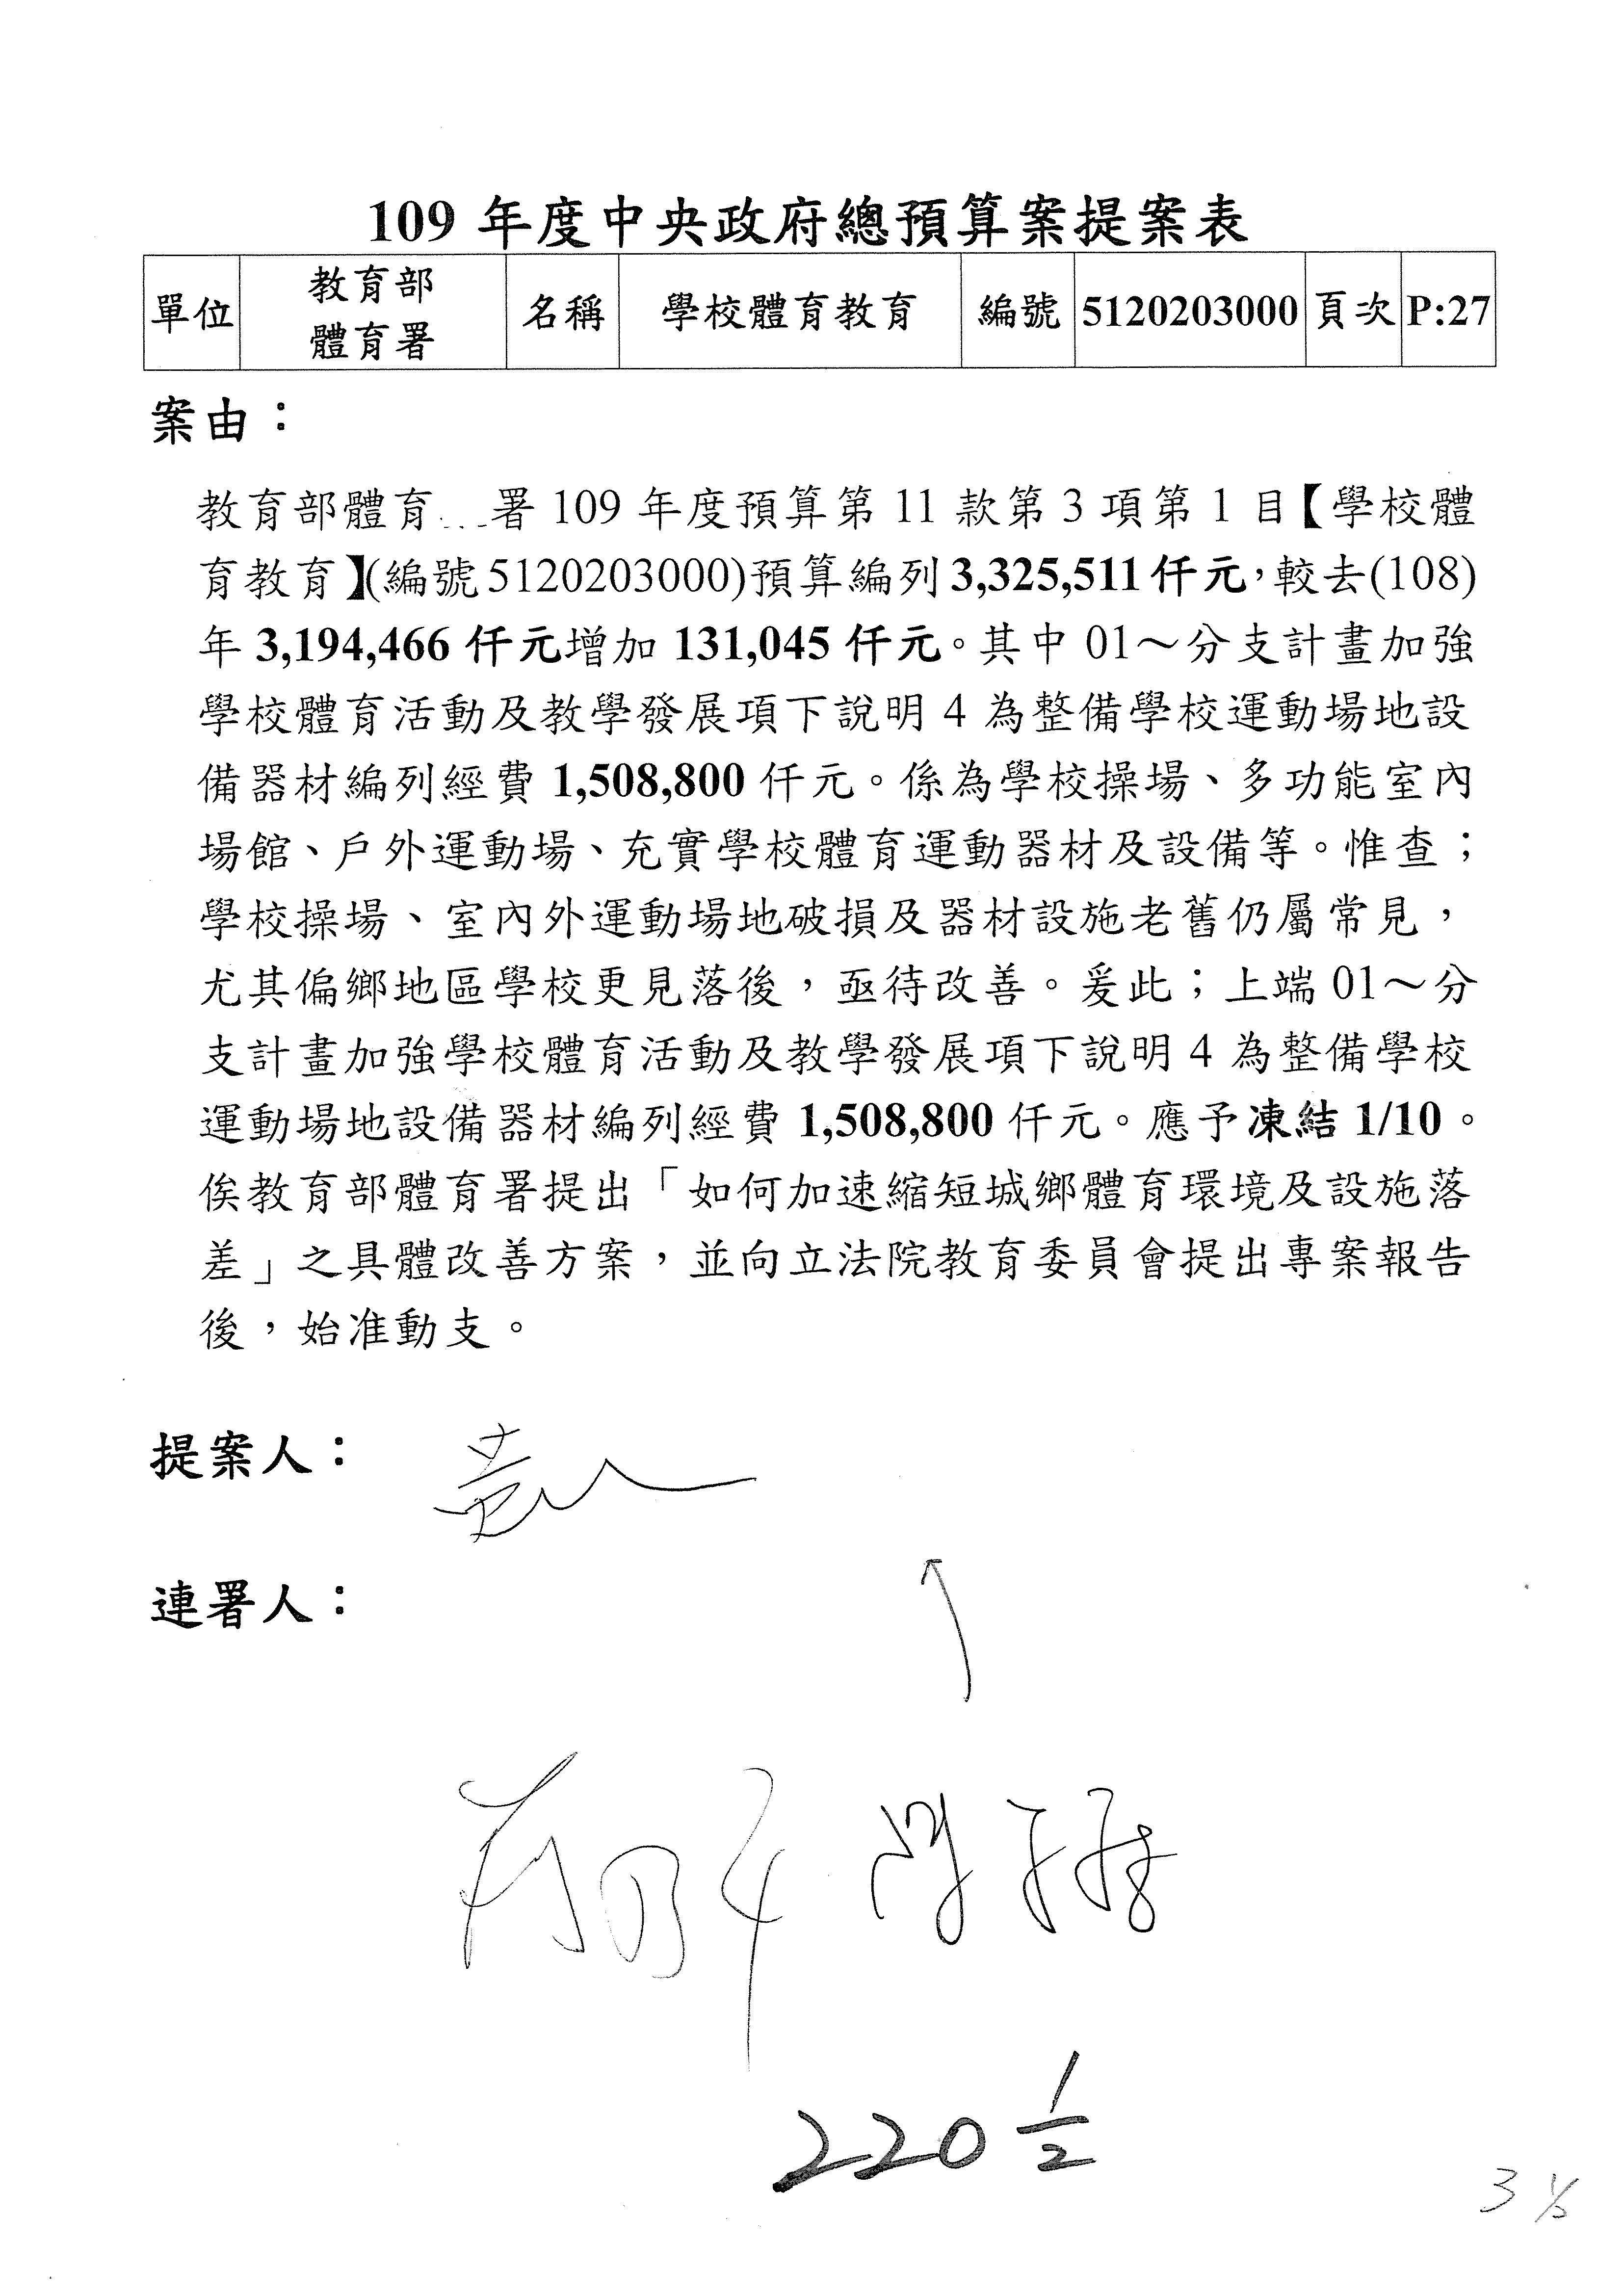 109 年度中央政府總預算案提案表
單位 教育部體育署 名稱 學校體育教育 編號 5120203000 頁次 P:27
案由：
教育部體育...-署 109 年度預算第 11 款第 3 項第 1 目【學校體
育教育】(編號5120203000)預算編列 3,325,511 仟元，較去(108)
年 3,194,466 仟元增加 131,045 仟元。其中 01～分支計畫加強
學校體育活動及教學發展項下說明 4 為整備學校運動場地設
備器材編列經費 1,508,800 仟元。係為學校操場、多功能室內
場館、戶外運動場、充實學校體育運動器材及設備等。惟查；
學校操場、室內外運動場地破損及器材設施老舊仍屬常見，
尤其偏鄉地區學校更見落後，亟待改善。爰此；上端 01～分
支計畫加強學校體育活動及教學發展項下說明 4 為整備學校
運動場地設備器材編列經費 1,508,800 仟元。應予凍結 1/10。
俟教育部體育署提出「如何加速縮短城鄉體育環境及設施落
差」之具體改善方案，並向立法院教育委員會提出專案報告
後，始准動支。
提案人：
連署人：
220 1/2
3 1/2